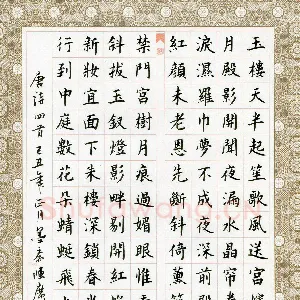 玉樓天半起笙歌風送宮
月殿影開聞夜漏水晶帘
淚濕羅巾夢不成夜深前
紅顏未老恩先斷斜倚薰
禁門宮樹月痕過媚眼惟
斜拔玉釵燈影畔剔開紅
新妝宜面下朱樓深鎖春
行到中庭數花朵蜻蜓飛
唐詩四首己丑年正月